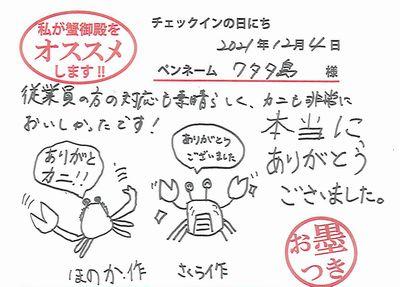 私が蟹御殿を
オススメ
します!!
チェックインの日にち
2021年12月4日
ペンネーム ワタタ島 様
従業員の方の対応も素晴らしく、カニも非常に
おいしかったです!
本当に、
ありがとう
ございました。
ありがと
カニ!!
ありがとう
ございました
ほのか.作
さくら作
お墨
つき